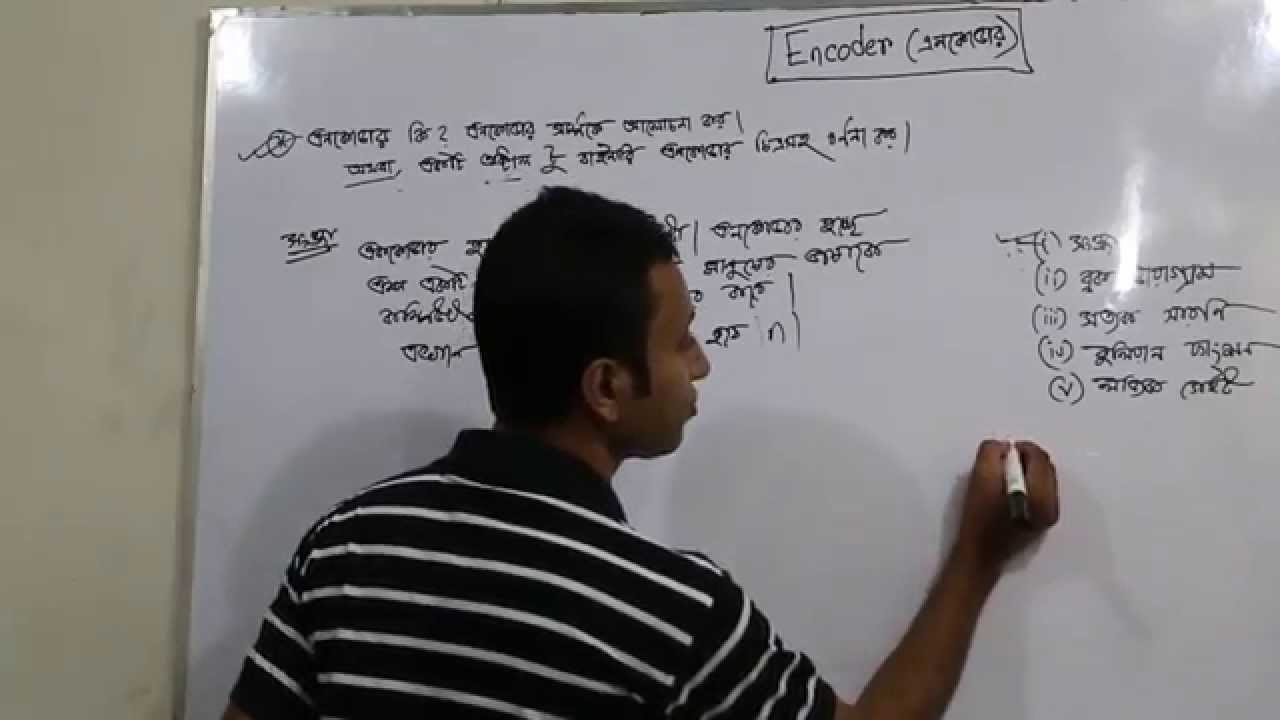 Encoder (এনকোডার)
এনকোডার কি? এনকোডার সম্পর্কে আলোচনা কর।
অথবা, একটি অক্টাল টু বাইনারি এনকোডার চিত্রসহ বর্ণনা কর।
সংজ্ঞা এনকোডার এনকোডার হচ্ছে
এমন একটি মানুষের ভাষাকে
করে।
এখানে হবে n
(i) সংজ্ঞা
(ii) ব্লক ডায়াগ্রাম
(iii) সত্যক সারণি
(iv) বুলিয়ান ফাংশন
(v) লজিক গেইট